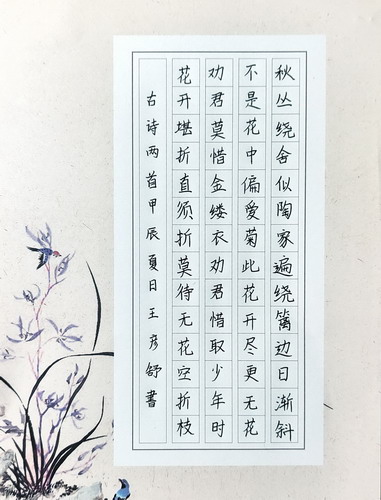 秋丛绕舍似陶家遍绕篱边日渐斜
不是花中偏爱菊此花开尽更无花
劝君莫惜金缕衣劝君惜取少年时
花开堪折直须折莫待无花空折枝
古诗两首甲辰夏日王彦舒书